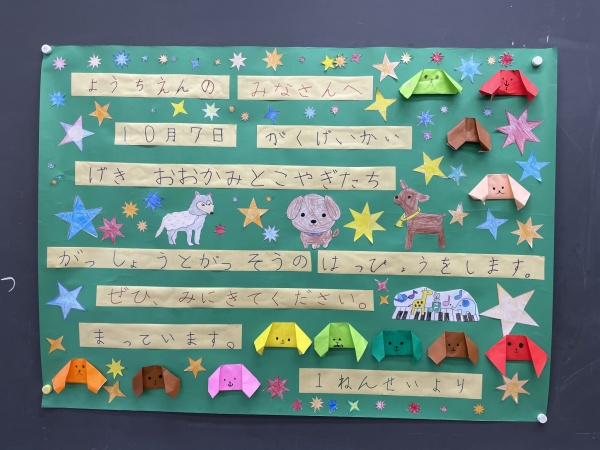 ようちえんの みなさんへ
10月7日 がくげいかい
げき おおかみとこやぎたち
がっしょうとがっそうの はっぴょうをします。
ぜひ、みにきてください。
まっています。
1ねんせいより